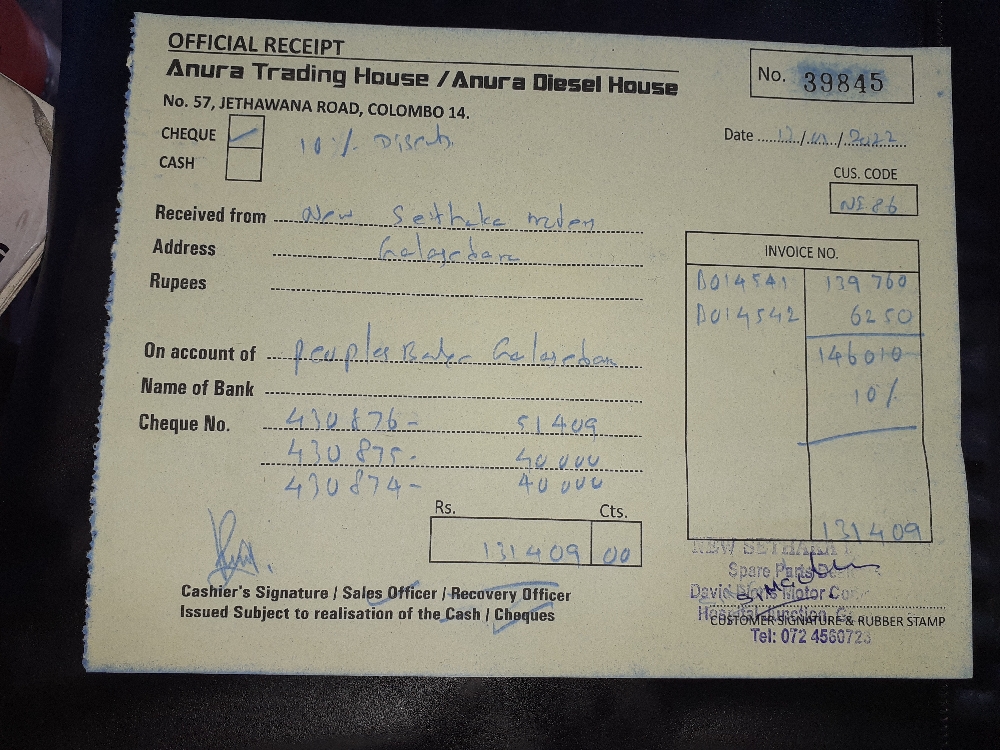 OFFICIAL RECEIPT
Anura Trading House / Anura Diesel House
No. 57, JETHAWANA ROAD, COLOMBO 14.
No. 39845
CHEQUE
CASH
10%
Date 12/ /2022
CUS. CODE
NE 86
Received from New
Address
Rupees
INVOICE NO.
D014541 139 760
D014542 6250
146010
10%
131409
On account of Peoples Bank
Name of Bank
Cheque No. 430876- 51409
430 875- 40 000
430 874- 40 000
Rs. Cts.
131409 00
Cashier's Signature / Sales Officer / Recovery Officer
Issued Subject to realisation of the Cash / Cheques
NEW SETHAKA
Spare Parts
David Motor
Hospital Junction,
CUSTOMER SIGNATURE & RUBBER STAMP
Tel: 072 4560723